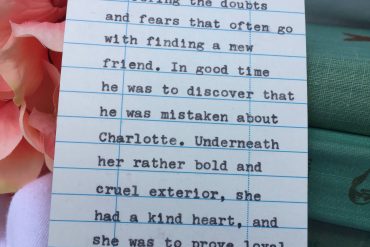 the doubts
and fears that often go
with finding a new
friend. In good time
he was to discover that
he was mistaken about
Charlotte. Underneath
her rather bold and
cruel exterior, she
had a kind heart, and
she was to prove loyal